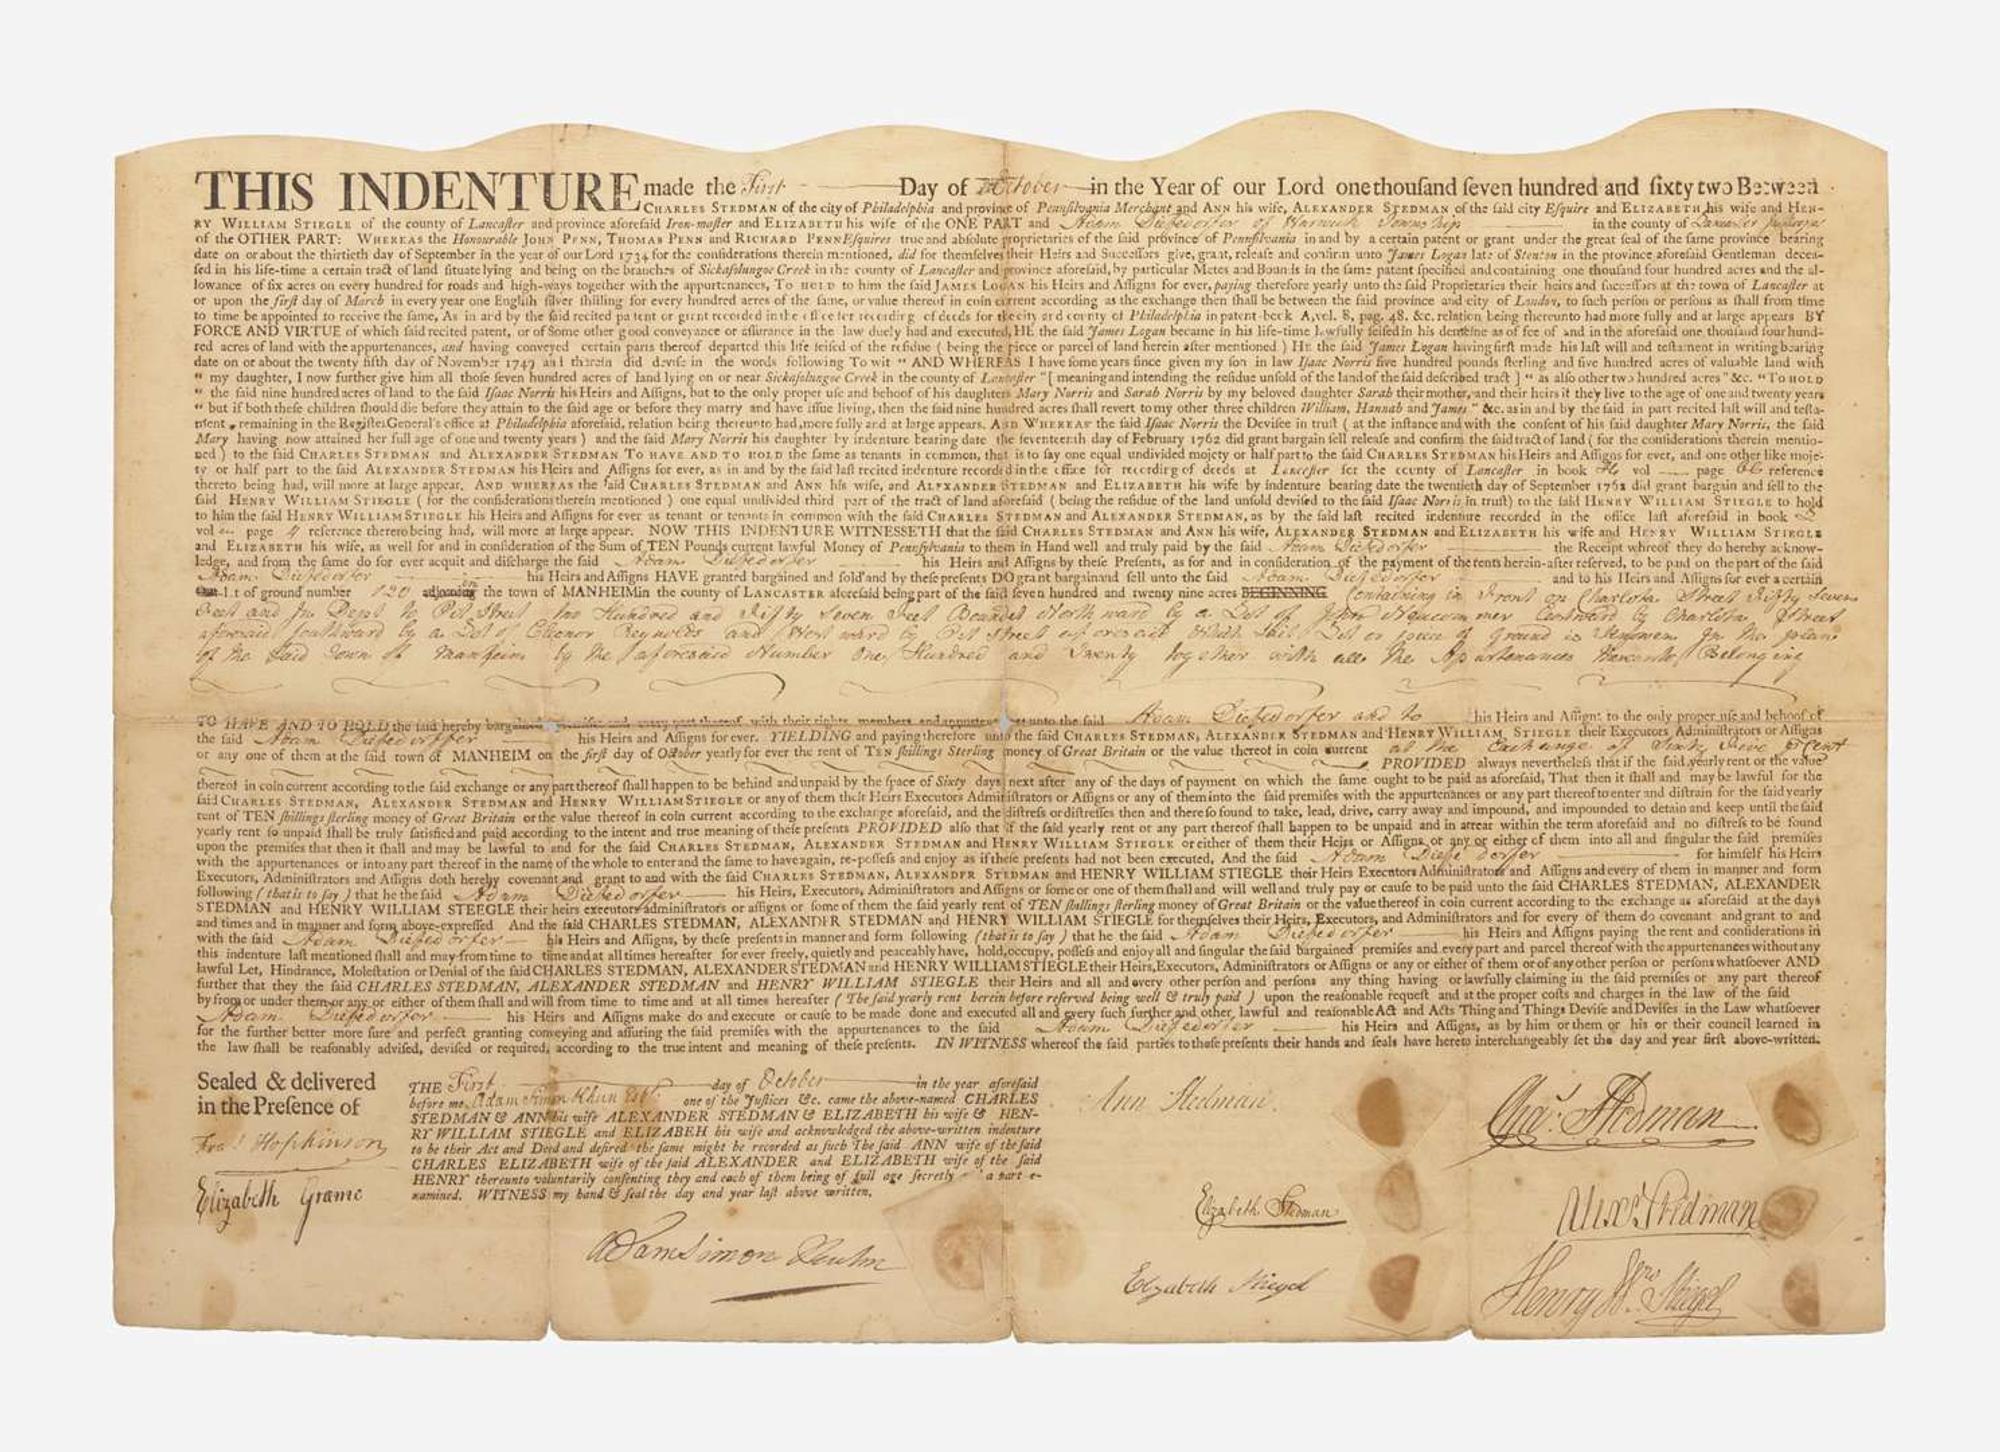 THIS INDENTURE made the First Day of October in the Year of our Lord one thouſand ſeven hundred and ſixty two Between
CHARLES STEDMAN of the city of Philadelphia and province of Pennſilvania Merchant and ANN his wife, ALEXANDER STEDMAN of the ſaid city Eſquire and ELIZABETH his wife and HEN-
RY WILLIAM STIEGLE of the county of Lancaſter and province aforeſaid Iron-maſter and ELIZABETH his wife of the ONE PART and Adam Diefedorfer of Warwick Township in the county of Lancaster
of the OTHER PART: WHEREAS the Honourable JOHN PENN, THOMAS PENN and RICHARD PENN Eſquires true and abſolute proprietaries of the ſaid province of Pennſilvania in and by a certain patent or grant under the great ſeal of the ſame province bearing
date on or about the thirtieth day of September in the year of our Lord 1734 for the conſiderations therein mentioned, did for themſelves their Heirs and Succeſſors give, grant, releaſe and confirm unto James Logan late of Stenton in the province aforeſaid Gentleman decea-
ſed in his life-time a certain tract of land ſituate lying and being on the branches of Sickaſolungoe Creek in the county of Lancaſter and province aforeſaid, by particular Metes and Bounds in the ſame patent ſpecified and containing one thouſand four hundred acres and the al-
lowance of ſix acres on every hundred for roads and high-ways together with the appurtenances, TO HOLD to him the ſaid JAMES LOGAN his Heirs and Aſſigns for ever, paying therefore yearly unto the ſaid Proprietaries their heirs and ſucceſſors at the town of Lancaſter at
or upon the firſt day of March in every year one Engliſh ſilver ſhilling for every hundred acres of the ſame, or value thereof in coin current according as the exchange then ſhall be between the ſaid province and city of London, to ſuch perſon or perſons as ſhall from time
to time be appointed to receive the ſame, As in and by the ſaid recited patent or grant recorded in the office for recording of deeds for the city and county of Philadelphia in patent-book A, vol. 8, pag. 48. &c. relation being thereunto had more fully and at large appears BY
FORCE AND VIRTUE of which ſaid recited patent, or of Some other good conveyance or aſſurance in the law duely had and executed, HE the ſaid James Logan became in his life-time lawfully ſeiſed in his demeſne as of fee of and in the aforeſaid one thouſand four hund-
red acres of land with the appurtenances, and having conveyed certain parts thereof departed this life ſeiſed of the reſidue ( being the piece or parcel of land herein after mentioned ) HE the ſaid James Logan having firſt made his laſt will and teſtament in writing bearing
date on or about the twenty fifth day of November 1749 and therein did deviſe in the words following To wit " AND WHEREAS I have ſome years ſince given my ſon in law Iſaac Norris five hundred pounds ſterling and five hundred acres of valuable land with
" my daughter, I now further give him all thoſe ſeven hundred acres of land lying on or near Sickaſolungoe Creek in the county of Lancaſter " [ meaning and intending the reſidue unſold of the land of the ſaid deſcribed tract ] " as alſo other two hundred acres " &c. " TO HOLD
" the ſaid nine hundred acres of land to the ſaid Iſaac Norris his Heirs and Aſſigns, but to the only proper uſe and behoof of his daughters Mary Norris and Sarah Norris by my beloved daughter Sarah their mother, and their heirs if they live to the age of one and twenty years
" but if both theſe children ſhould die before they attain to the ſaid age or before they marry and have iſſue living, then the ſaid nine hundred acres ſhall revert to my other three children William, Hannah and James " &c. as in and by the ſaid in part recited laſt will and teſta-
ment, remaining in the Regiſter General's office at Philadelphia aforeſaid, relation being thereunto had, more fully and at large appears. AND WHEREAS the ſaid Iſaac Norris the Deviſee in truſt ( at the inſtance and with the conſent of his ſaid daughter Mary Norris, the ſaid
Mary having now attained her full age of one and twenty years ) and the ſaid Mary Norris his daughter by indenture bearing date the ſeventeenth day of February 1762 did grant bargain ſell releaſe and confirm the ſaid tract of land ( for the conſiderations therein mentio-
ned ) to the ſaid CHARLES STEDMAN and ALEXANDER STEDMAN TO HAVE AND TO HOLD the ſame as tenants in common, that is to ſay one equal undivided moiety or half part to the ſaid CHARLES STEDMAN his Heirs and Aſſigns for ever, and one other like moie-
ty or half part to the ſaid ALEXANDER STEDMAN his Heirs and Aſſigns for ever, as in and by the ſaid laſt recited indenture recorded in the office for recording of deeds at Lancaſter for the county of Lancaſter in book vol page reference
thereto being had, will more at large appear. AND WHEREAS the ſaid CHARLES STEDMAN and ANN his wife, and ALEXANDER STEDMAN and ELIZABETH his wife by indenture bearing date the twentieth day of September 1762 did grant bargain and ſell to the
ſaid HENRY WILLIAM STIEGLE ( for the conſideration therein mentioned ) one equal undivided third part of the tract of land aforeſaid ( being the reſidue of the land unſold deviſed to the ſaid Iſaac Norris in truſt) to the ſaid HENRY WILLIAM STIEGLE to hold
to him the ſaid HENRY WILLIAM STIEGLE his Heirs and Aſſigns for ever as tenant or tenants in common with the ſaid CHARLES STEDMAN and ALEXANDER STEDMAN, as by the ſaid laſt recited indenture recorded in the office laſt aforeſaid in book
vol page reference thereto being had, will more at large appear. NOW THIS INDENTURE WITNESSETH that the ſaid CHARLES STEDMAN and ANN his wife, ALEXANDER STEDMAN and ELIZABETH his wife and HENRY WILLIAM STIEGLE
and ELIZABETH his wife, as well for and in conſideration of the Sum of TEN Pounds current lawful Money of Penſylvania to them in Hand well and truly paid by the ſaid Adam Diefedorfer the Receipt whreof they do hereby acknow-
ledge, and from the ſame do for ever acquit and diſcharge the ſaid Adam Diefedorfer his Heirs and Aſſigns by theſe Preſents, as for and in conſideration of the payment of the rents herein-after reſerved, to be paid on the part of the ſaid
Adam Diefedorfer his Heirs and Aſſigns HAVE granted bargained and ſold and by theſe preſents DO grant bargain and ſell unto the ſaid Adam Diefedorfer and to his Heirs and Aſſigns for ever a certain
Lot of ground number 120 adjoining in the town of MANHEIM in the county of LANCASTER aforeſaid being part of the ſaid ſeven hundred and twenty nine acres BEGINNING Containing in Front on Charlota Street Fifty Seven
Feet and In Dept to Pit Street two Hundred and Fifty Seven Feet Bounded North ward by a Lot of John Eastward by Charlota Street
aforesaid Southward by a Lot of Elleonor Reynolds and West ward by Pit Street aforesaid Which Said Lot or piece of Ground is In the plan
of the Said Town of Manheim by the aforesaid Number One Hundred and Twenty together with all the Apurtenances Thereunto Belonging
TO HAVE AND TO HOLD the ſaid hereby bargained premiſes and every part thereof with their rights members and appurtenances unto the ſaid Adam Diefedorfer and to his Heirs and Aſſigns to the only proper uſe and behoof of
the ſaid Adam Diefedorffer his Heirs and Aſſigns for ever. YIELDING and paying therefore unto the ſaid CHARLES STEDMAN, ALEXANDER STEDMAN and HENRY WILLIAM STIEGLE their Executors Adminiſtrators or Aſſigns
or any one of them at the ſaid town of MANHEIM on the firſt day of October yearly for ever the rent of TEN ſhillings Sterling money of Great Britain or the value thereof in coin current at the Exchange of Sixty Five PCent
PROVIDED always nevertheleſs that if the ſaid yearly rent or the value
thereof in coin current according to the ſaid exchange or any part thereof ſhall happen to be behind and unpaid by the ſpace of Sixty days next after any of the days of payment on which the ſame ought to be paid as aforeſaid, That then it ſhall and may be lawful for the
ſaid CHARLES STEDMAN, ALEXANDER STEDMAN and HENRY WILLIAM STIEGLE or any of them their Heirs Executors Adminiſtrators or Aſſigns or any of them into the ſaid premiſes with the appurtenances or any part thereof to enter and diſtrain for the ſaid yearly
rent of TEN ſhillings ſterling money of Great Britain or the value thereof in coin current according to the exchange aforeſaid, and the diſtreſs or diſtreſſes then and there ſo found to take, lead, drive, carry away and impound, and impounded to detain and keep until the ſaid
yearly rent ſo unpaid ſhall be truly ſatisfied and paid according to the intent and true meaning of theſe preſents PROVIDED alſo that if the ſaid yearly rent or any part thereof ſhall happen to be unpaid and in arrear within the term aforeſaid and no diſtreſs to be found
upon the premiſes that then it ſhall and may be lawful to and for the ſaid CHARLES STEDMAN, ALEXANDER STEDMAN and HENRY WILLIAM STIEGLE or either of them their Heirs or Aſſigns or any or either of them into all and ſingular the ſaid premiſes
with the appurtenances or into any part thereof in the name of the whole to enter and the ſame to have again, re-poſſeſs and enjoy as if theſe preſents had not been executed, And the ſaid Adam Diefedorfer for himſelf his Heirs
Executors, Adminiſtrators and Aſſigns doth hereby covenant and grant to and with the ſaid CHARLES STEDMAN, ALEXANDER STEDMAN and HENRY WILLIAM STIEGLE their Heirs Executors Adminiſtrators and Aſſigns and every of them in manner and form
following ( that is to ſay ) that he the ſaid Adam Diefedorfer his Heirs, Executors, Adminiſtrators and Aſſigns or ſome or one of them ſhall and will well and truly pay or cauſe to be paid unto the ſaid CHARLES STEDMAN, ALEXANDER
STEDMAN and HENRY WILLIAM STEEGLE their heirs executors adminiſtrators or aſſigns or ſome of them the ſaid yearly rent of TEN ſhillings ſterling money of Great Britain or the value thereof in coin current according to the exchange as aforeſaid at the days
and times and in manner and form above-expreſſed And the ſaid CHARLES STEDMAN, ALEXANDER STEDMAN and HENRY WILLIAM STIEGLE for themſelves their Heirs, Executors, and Adminiſtrators and for every of them do covenant and grant to and
with the ſaid Adam Diefedorfer his Heirs and Aſſigns, by theſe preſents in manner and form following (that is to ſay ) that he the ſaid Adam Diefedorfer his Heirs and Aſſigns paying the rent and conſiderations in
this indenture laſt mentioned ſhall and may from time to time and at all times hereafter for ever freely, quietly and peaceably have, hold, occupy, poſſeſs and enjoy all and ſingular the ſaid bargained premiſes and every part and parcel thereof with the appurtenances without any
lawful Let, Hindrance, Moleſtation or Denial of the ſaid CHARLES STEDMAN, ALEXANDER STEDMAN and HENRY WILLIAM STIEGLE their Heirs, Executors, Adminiſtrators or Aſſigns or any or either of them or of any other perſon or perſons whatſoever AND
further that they the ſaid CHARLES STEDMAN, ALEXANDER STEDMAN and HENRY WILLIAM STIEGLE their Heirs and all and every other perſon and perſons any thing having or lawfully claiming in the ſaid premiſes or any part thereof
by from or under them or any or either of them ſhall and will from time to time and at all times hereafter ( The ſaid yearly rent herein before reſerved being well & truly paid ) upon the reaſonable requeſt and at the proper coſts and charges in the law of the ſaid
Adam Diefedorfer his Heirs and Aſſigns make do and execute or cauſe to be made done and executed all and every ſuch further and other, lawful and reaſonable Act and Acts Thing and Things Deviſe and Deviſes in the Law whatſoever
for the further better more ſure and perfect granting conveying and aſſuring the ſaid premiſes with the appurtenances to the ſaid Adam Diefedorfer his Heirs and Aſſigns, as by him or them or his or their council learned in
the law ſhall be reaſonably adviſed, deviſed or required, according to the true intent and meaning of theſe preſents. IN WITNESS whereof the ſaid parties to theſe preſents their hands and ſeals have hereto interchangeably ſet the day and year firſt above-written.
Sealed & delivered
in the Preſence of
Fras Hopkinson
Elizabeth Grame
THE First day of October in the year aforeſaid
before me Adam Simon Khun Esqr one of the Juſtices &c. came the above-named CHARLES
STEDMAN & ANN his wife ALEXANDER STEDMAN & ELIZABETH his wife & HEN-
RY WILLIAM STIEGLE and ELIZABEH his wife and acknowledged the above-written indenture
to be their Act and Deed and deſired the ſame might be recorded as ſuch The ſaid ANN wife of the ſaid
CHARLES ELIZABETH wife of the ſaid ALEXANDER and ELIZABETH wife of the ſaid
HENRY thereunto voluntarily conſenting they and each of them being of full age ſecretly a part e-
xamined. WITNESS my hand & ſeal the day and year laſt above written.
Adam Simon Kuhn
Ann Stedman
Chas. Stedman
Elizabeth Stedman
Alexr. Stedman
Elizabeth Stiegel
Henry Wm. Stiegel